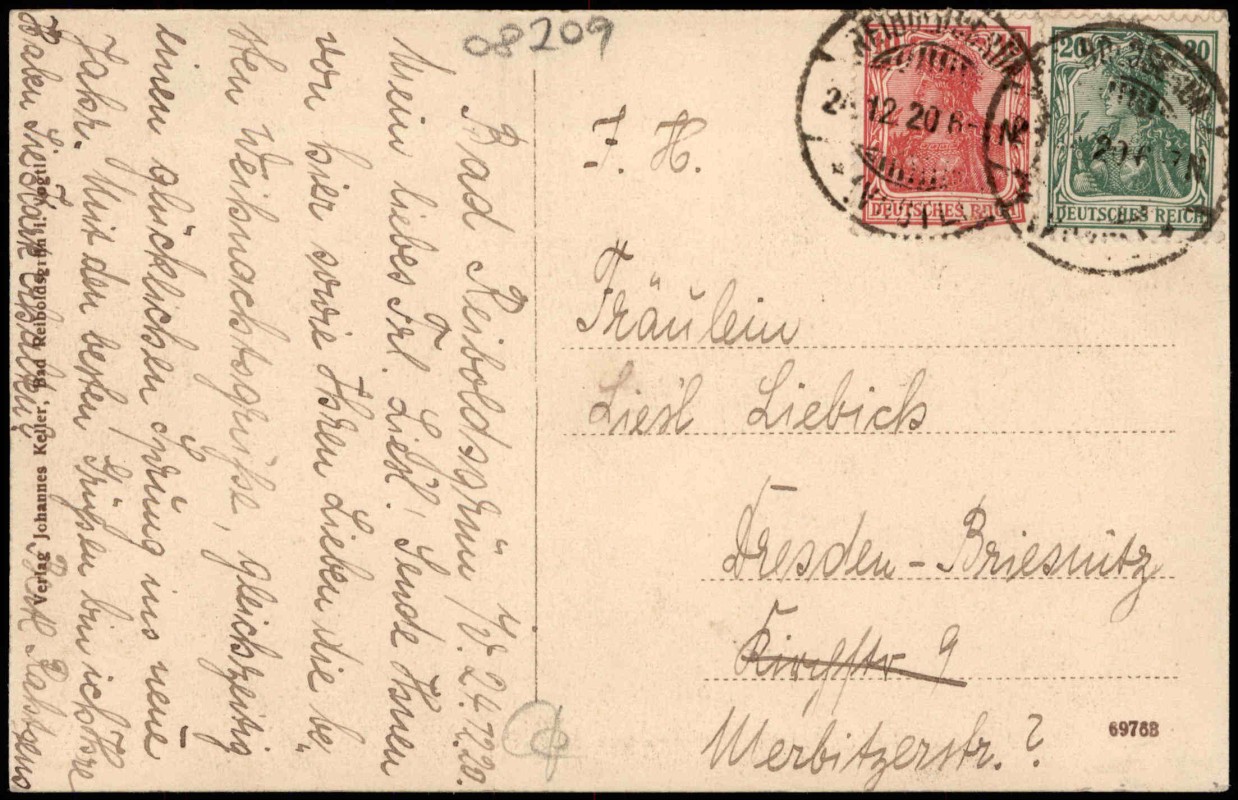 08209
Bad Reiboldsgrün i/V. 24.12.20.
Mein liebes Frl. Liesl! Sende Ihnen
von hier sowie Ihren Lieben die be„
sten Weihnachtsgrüße, gleichzeitig
einen glücklichen Sprung ins neue
Jahr. Mit den besten Grüßen bin ich Ihre
Verlag Johannes Keller, Bad Reiboldsgrün i. Vogtl.
DEUTSCHES REICH
20 20
DEUTSCHES REICH
12.20 6-
F. H.
Fräulein
Liesl Liebich
Dresden - Briesnitz
Kirchstr 9
Merbitzerstr. ?
69768